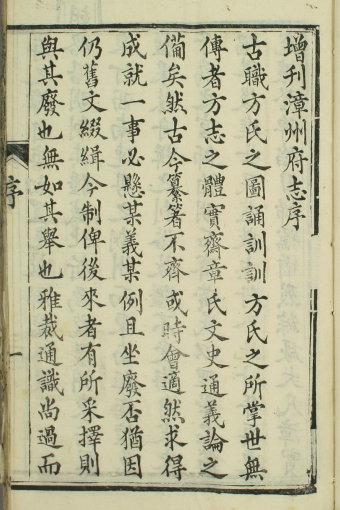 增刊漳州府志序
古職方氏之圖誦訓訓方氏之所掌世無
傳者方志之體實齋章氏文史通義論之
備矣然古今纂著不齊或時會適然求得
成就一事必懸某義某例且坐廢否猶因
仍舊文綴緝今制俾後來者有所采擇則
與其廢也無如其舉也雅裁通識尚過而
序
一